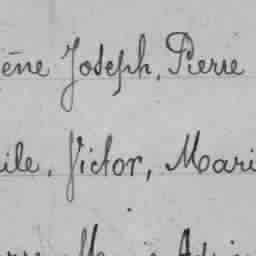 ène Joseph, Pierre
ile, Victor, Mari